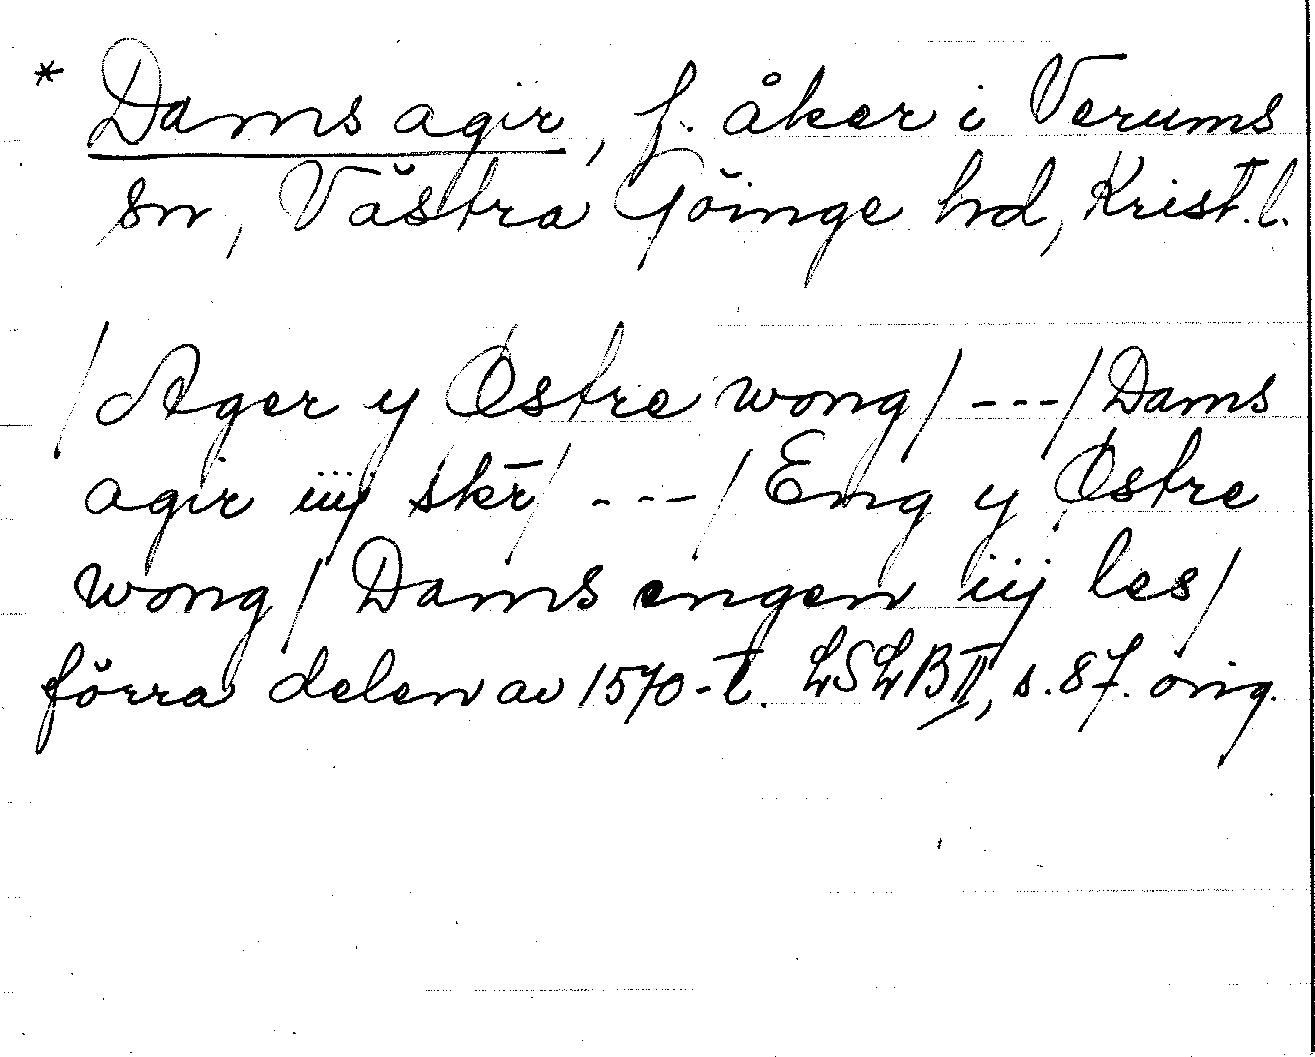 * Dams agir, f. åker i Verums
sn, Västra Göinge hd, Krist. l.
/Ager y Østre wong/ --- /Dams
agir iiij skr̄/ --- / Eng y Østre
wong/ Dams engen iij les/
förra delen av 1570-t. LSLB II, s. 87. orig.